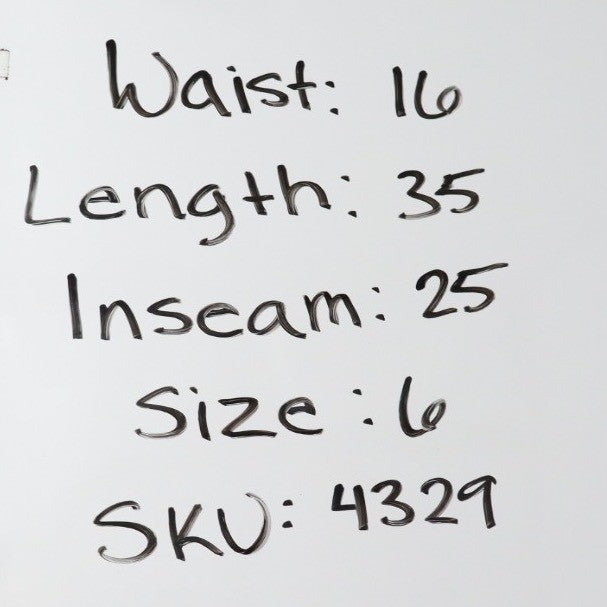 Waist: 16
Length: 35
Inseam: 25
Size: 6
SKU: 4329